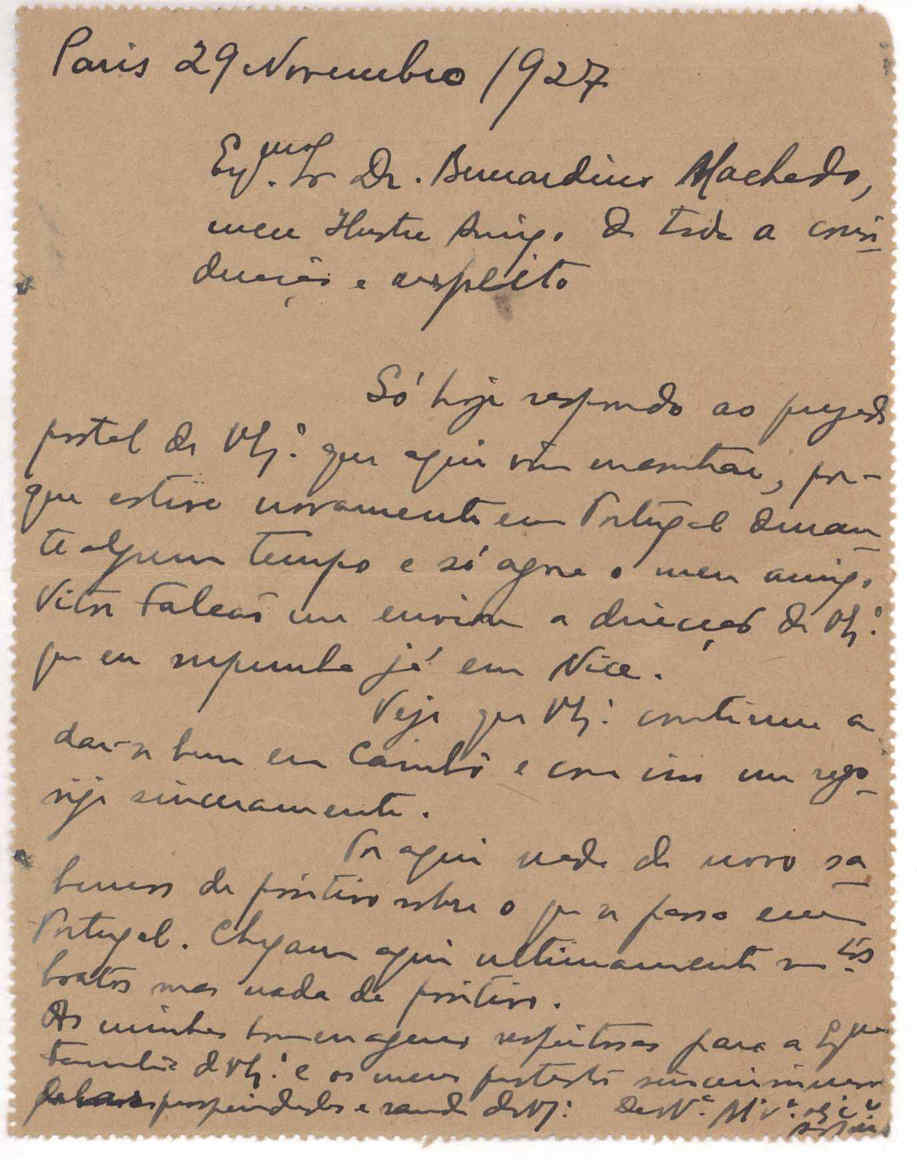 Paris 29 Novembro 1927
Exmo. Sr Dr. Bernardino Machado,
meu Ilustre Amigo de toda a consi-
deração e respeito
Só hoje respondo ao prezado
postal de VExª. que aqui vim encontrar, por-
que estive novamente em Portugal duran-
te algum tempo e só agora o meu amigo
Vitor Falcão me enviou a direcção de VExª.
que eu supunha já em Nice.
Vejo que VExª. continua a
dar-se bem em Cambô e com isso me rego-
sijo sinceramente.
Por aqui nada de novo sa-
bemos de positivo sobre o que se passa em
Portugal. Chegam aqui ultimamente mtos
boatos mas nada de positivo.
As minhas homenagens respeitosas para a Exma
Familia de VExª. e os meus protestos sincerissimos
pelas prosperidades e saude de VExª. De VExª.